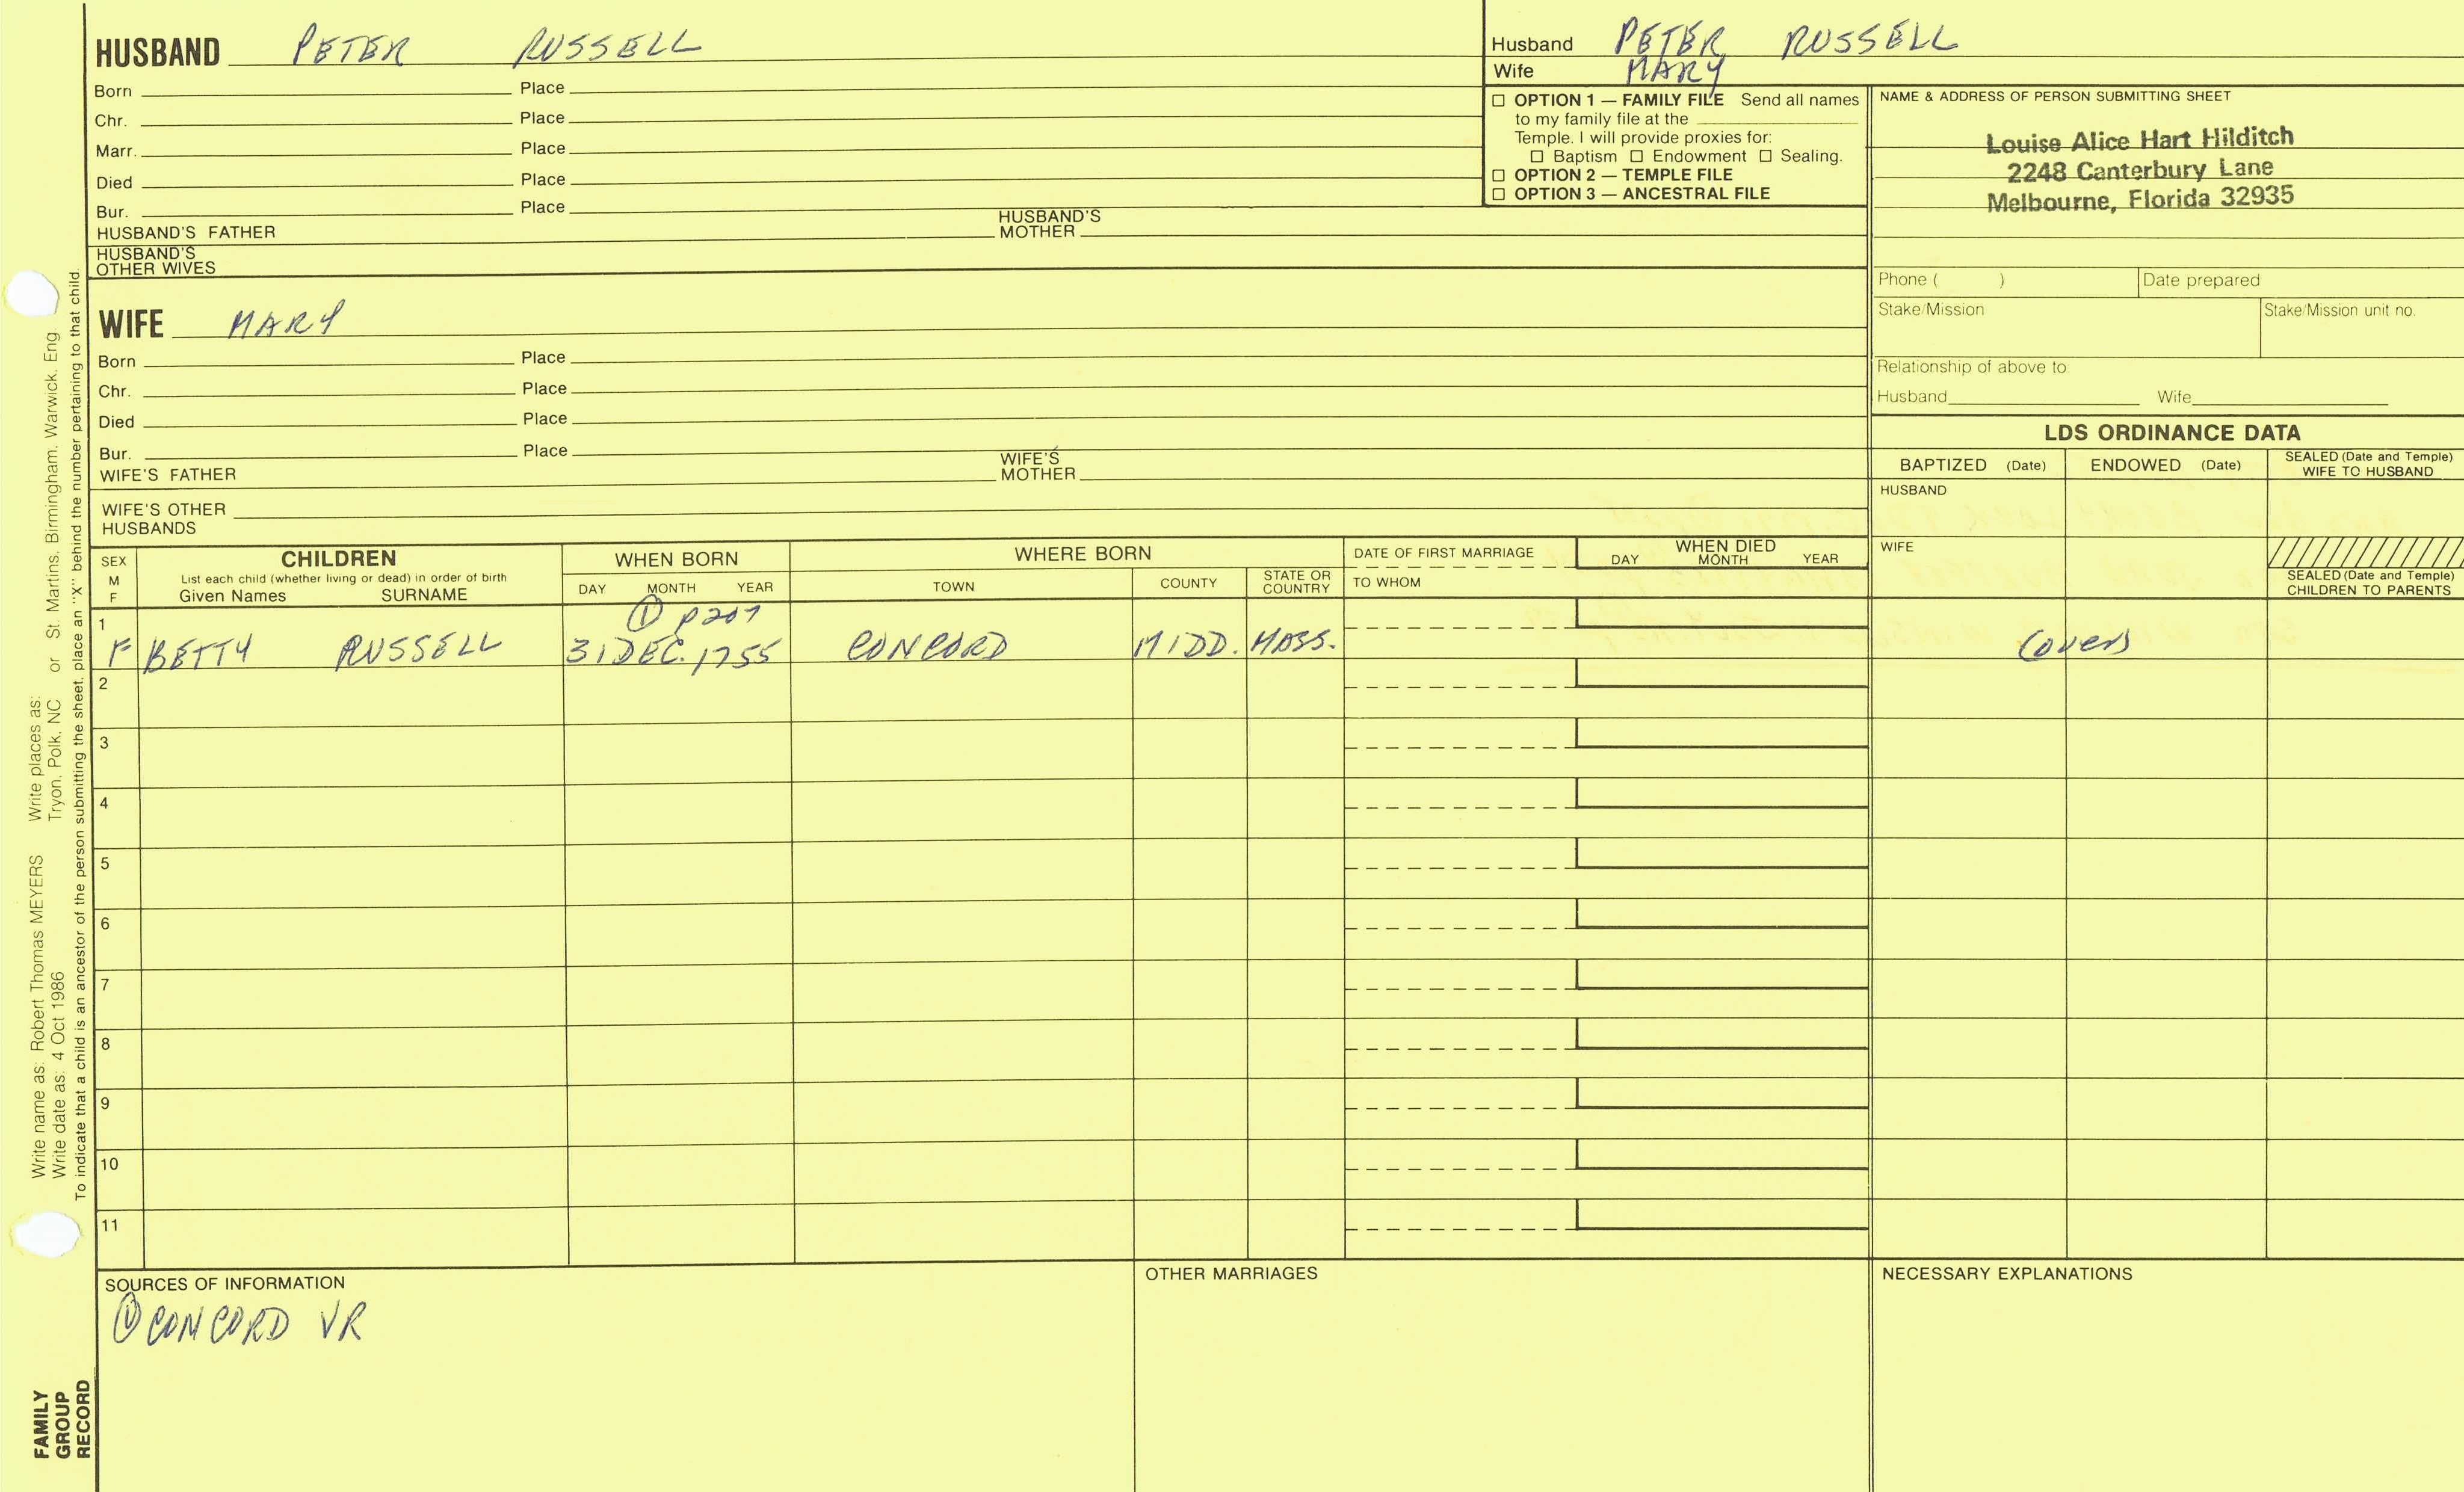 HUSBAND PETER RUSSELL
Born Place
Chr. Place
Marr. Place
Died Place
Bur. Place
HUSBAND'S FATHER HUSBAND'S MOTHER
HUSBAND'S OTHER WIVES
Husband PETER RUSSELL
Wife MARY
☐ OPTION 1 — FAMILY FILE Send all names
to my family file at the
Temple. I will provide proxies for:
☐ Baptism ☐ Endowment ☐ Sealing.
☐ OPTION 2 — TEMPLE FILE
☐ OPTION 3 — ANCESTRAL FILE
NAME & ADDRESS OF PERSON SUBMITTING SHEET
Louise Alice Hart Hilditch
2248 Canterbury Lane
Melbourne, Florida 32935
Phone ( ) Date prepared
Stake/Mission Stake/Mission unit no.
Relationship of above to
Husband Wife
WIFE MARY
Born Place
Chr. Place
Died Place
Bur. Place
WIFE'S FATHER WIFE'S MOTHER
WIFE'S OTHER
HUSBANDS
LDS ORDINANCE DATA
BAPTIZED (Date) ENDOWED (Date) SEALED (Date and Temple)
WIFE TO HUSBAND
HUSBAND
WIFE
SEALED (Date and Temple)
CHILDREN TO PARENTS
SEX
M
F
CHILDREN
List each child (whether living or dead) in order of birth
Given Names SURNAME
WHEN BORN
DAY MONTH YEAR
WHERE BORN
TOWN COUNTY STATE OR COUNTRY
DATE OF FIRST MARRIAGE
TO WHOM
WHEN DIED
DAY MONTH YEAR
1 ① P207
F BETTY RUSSELL 31 DEC. 1755 CONCORD MIDD. MASS. (over)
2
3
4
5
6
7
8
9
10
11
SOURCES OF INFORMATION
① CONCORD VR
OTHER MARRIAGES
NECESSARY EXPLANATIONS
Write name as: Robert Thomas MEYERS Write places as:
Write date as: 4 Oct 1986 Tryon, Polk, NC or St. Martins, Birmingham, Warwick, Eng
To indicate that a child is an ancestor of the person submitting the sheet, place an "X" behind the number pertaining to that child.
FAMILY
GROUP
RECORD